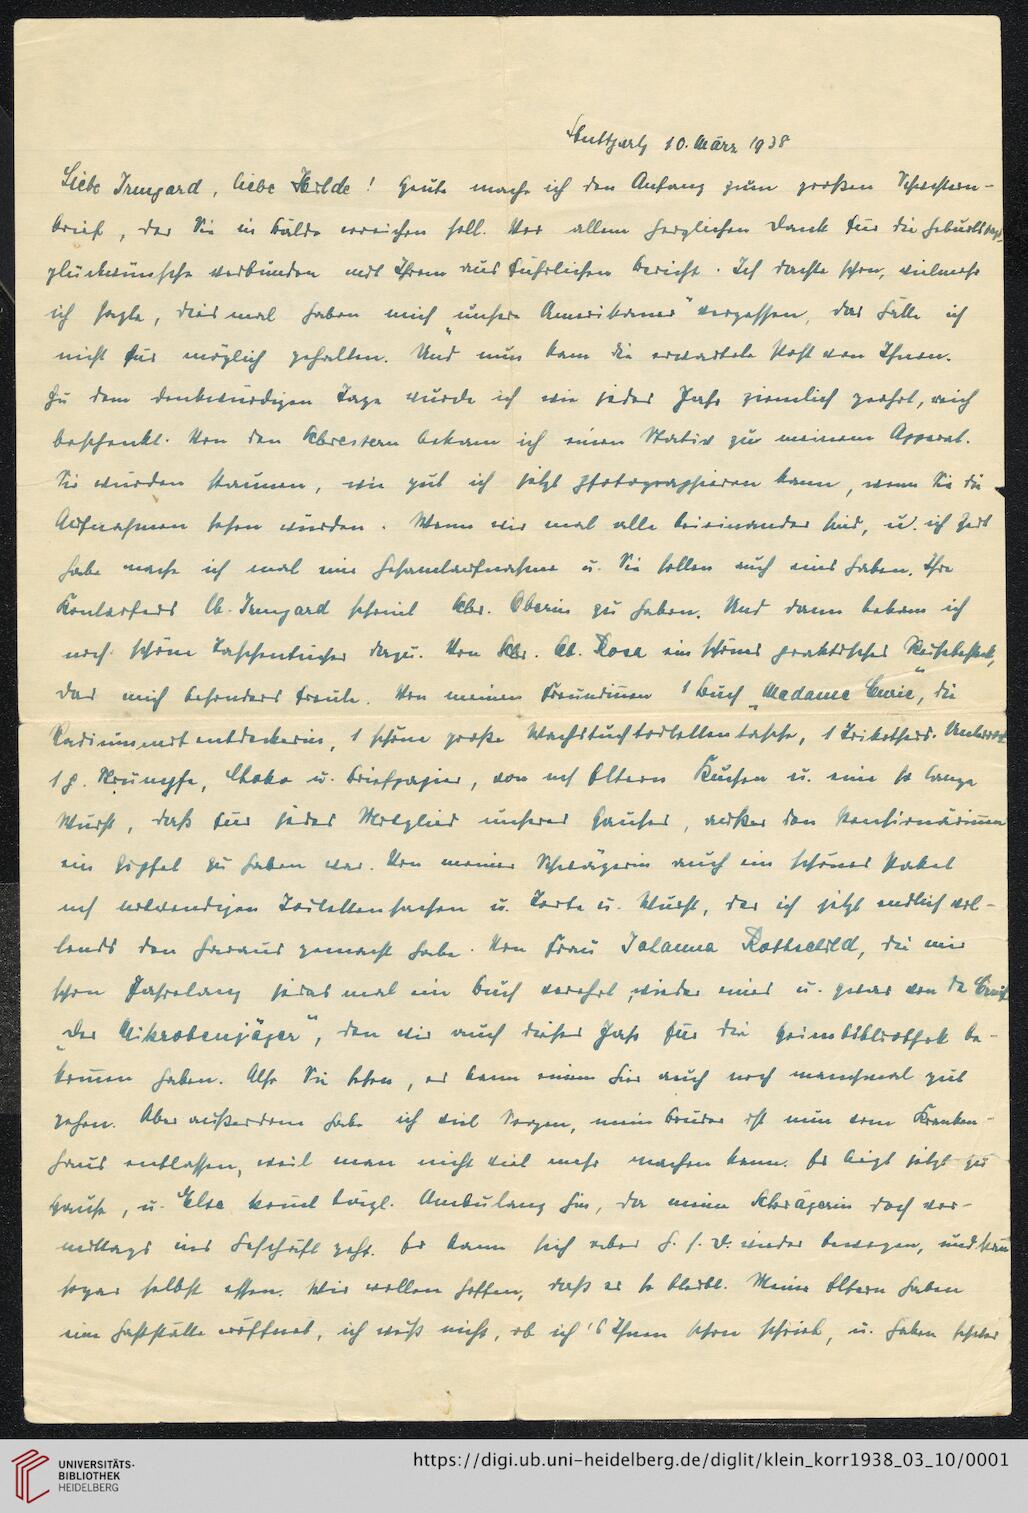 Stuttgart, 10. März 1938
Liebe Irmgard, liebe Hilde! Heute mache ich den Anfang zum großen Schwestern-
brief, der Sie in Bälde erreichen soll. Vor allem herzlichen Dank für die Geburtstags-
glückwünsche verbunden mit Ihrem ausführlichen Bericht. Ich dachte schon, vielmehr
ich sagte, diesmal haben mich "unsere Amerikaner" vergessen, das hätte ich
nicht für möglich gehalten. Und nun kam die erwartete Post von Ihnen.
Zu dem denkwürdigen Tage wurde ich wie jedes Jahr ziemlich geehrt, reich
beschenkt. Von den Schwestern bekam ich einen Stativ zu meinem Apparat.
Sie würden staunen, wie gut ich jetzt photographieren kann, wenn Sie die
Aufnahmen sehen würden. Wenn wir mal alle beieinander sind, u. ich Zeit
habe mache ich mal eine Gesamtaufnahme u. Sie sollen auch eins haben. Ihr
Konterfeis lb. Irmgard scheint Schw. Oberin zu haben. Und dann bekam ich
noch schöne Taschentücher dazu. Von Schw. lb. Rosa ein schönes praktisches Reisebesteck,
das mich besonders freute. Von meinen Freundinnen 1 Buch "Madame Curie", die
Radiummitentdeckerin, 1 schöne große Wachstuchtoilettentasche, 1 Trikotseid. Unterrock
1 p. Strümpfe, Choko u. Briefpapier, von m/ Eltern Kuchen u. eine so lange
Wurst, daß für jedes Mitglied unseres Hauses, außer den Pensionärinnen
ein Zipfel zu haben war. Von meiner Schwägerin auch ein schönes Paket
m/ notwendigen Toilettensachen u. Torte u. Wurst, der ich jetzt endlich vol-
lends den Garaus gemacht habe. Von Frau Johanna Rothschild, die mir
schon Jahrelang jedesmal ein Buch verehrt, wieder eines u. zwar von de Cruif
"Der Mikrobenjäger", den wir auch dieses Jahr für die Heimbibliothek be-
kommen haben. Also Sie sehen, es kann einem hier auch noch manchmal gut
gehen. Aber außerdem habe ich viel Sorgen, mein Bruder ist nun vom Kranken-
haus entlassen, weil man nicht viel mehr machen kann. Er liegt jetzt zu
Hause, u. Else kommt tägl. Ambulanz hin, da meine Schwägerin doch vor-
mittags ins Geschäft geht. Er kann sich aber G. s. D. wieder bewegen, und kann
sogar selbst essen. Wir wollen hoffen, daß es so bleibt. Meine Eltern haben
eine Gaststätte eröffnet, ich weiß nicht, ob ich's Ihnen schon schrieb, u. haben schwer
UNIVERSITÄTS-
BIBLIOTHEK
HEIDELBERG
https://digi.ub.uni-heidelberg.de/diglit/klein_korr1938_03_10/0001